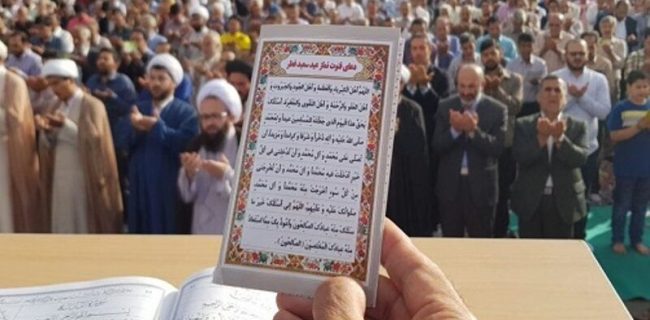 دعای قنوت نماز عید سعید فطر
اَللّهُمَّ اَهْلَ الْكِبْرِیاءِ وَالْعَظَمَةِ وَ اَهْلَ الْجُودِ وَالْجَبَرُوتِ وَ
اَهْلَ الْعَفْوِ وَالرَّحْمَةِ وَ اَهْلَ التَّقْوی وَالْمَغْفِرَةِ اَسْئَلُكَ
بِحَقِّ هذَا الْیَوْمِ الَّذی جَعَلْتَهُ لِلْمُسْلِمینَ عیداً وَ لِمُحَمَّدٍ
صَلَّی اللهُ عَلَیْهِ وَ آلِهِ ذُخْراً وَ شَرَفاً وَ كَرامَةً وَ مَزیداً اَنْ
تُصَلِّیَ عَلی مُحَمَّدٍ وَ آلِ مُحَمَّدٍ وَ اَنْ تُدْخِلَنی فی كُلِّ
خَیْرٍ اَدْخَلْتَ فیهِ مُحَمَّداً وَ آلَ مُحَمَّدٍ وَ اَنْ تُخْرِجَنی
مِنْ كُلِّ سُوءٍ اَخْرَجْتَ مِنْهُ مُحَمَّداً وَ آلَ مُحَمَّدٍ
صَلَواتُكَ عَلَیْهِ وَ عَلَیْهِمْ اَللّهُمَّ اِنّی اَسْئَلُكَ خَیْرَ ما
سَئَلَكَ مِنْهُ عِبادُكَ الصّالِحُونَ وَ اَعُوذُ بِكَ مِمَّا اسْتَعاذَ
مِنْهُ عِبادُكَ الْمُخْلَصُونَ (الصّالِحُونَ).